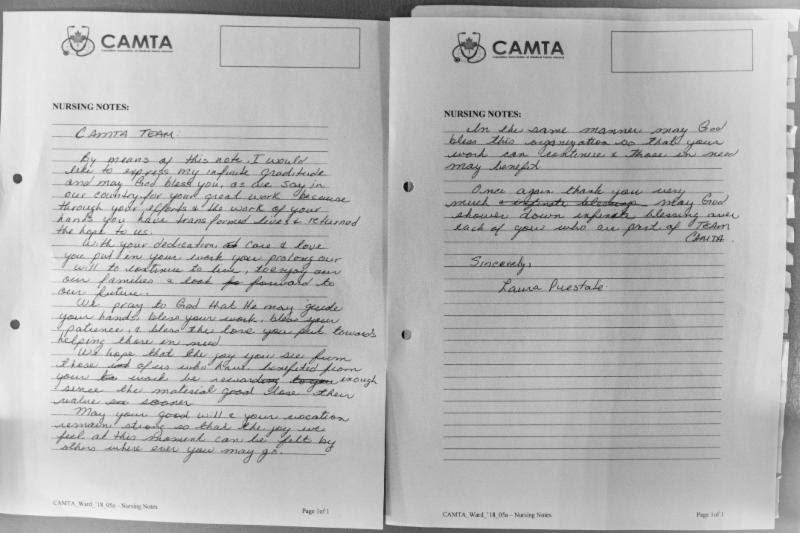 CAMTA
NURSING NOTES:
CAMTA TEAM:
By means of this note, I would
like to express my infinite gratitude
and may God bless you, as we say in
our country for your great work because
through your efforts & the work of your
hands you have transformed lives & returned
the hope to us.
With your dedication, care & love
you put in your work you prolong our
will to continue to live, to enjoy our
our families & look forward to
our future.
We pray to God that He may guide
your hands, bless your work, bless your
patience, & bless the love you put towards
helping those in need
We hope that the joy you see from
those of us who have benefited from
your work be rewarding to you enough
since the material good lose their
value sooner
May your good will & your vocation
remain strong so that the joy we
feel at this moment can be felt by
others where ever you may go.
CAMTA_Ward_'18_05a – Nursing Notes
Page 1of 1
CAMTA
NURSING NOTES:
In the same manner may God
bless this organization so that your
work can continue & those in need
may benefit
Once again thank you very
much & infinite blessings may God
shower down infinite blessing over
each of you who are part of TEAM
CAMTA.
Sincerely,
Laura
CAMTA_Ward_'18_05a – Nursing Notes
Page 1of 1